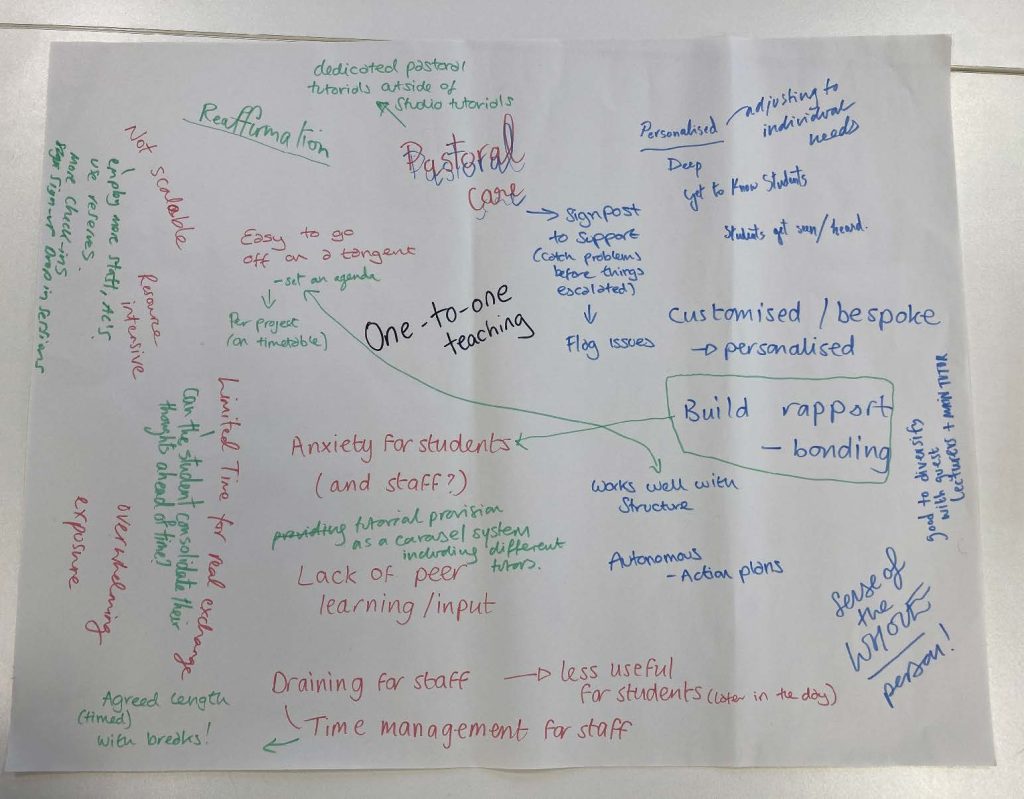 dedicated pastoral
tutorials outside of
Studio tutorials
Reaffirmation
Pastoral
care
Personalised
adjusting to
individual
needs
Deep
get to know students
Students get seen/heard.
→ Signpost
to support
(catch problems
before things
escalated)
↓
Flag issues
Not scalable
employ more staff, AL's
use reserves.
more check-ins
sign-up Drop in sessions
Resource
intensive
Easy to go
off on a tangent
- set an agenda
Per project
(on timetable)
One-to-one
teaching
Customised / bespoke
→ personalised
Build rapport
- bonding
good to diversify
with guest
Lecturers + MAIN TUTOR
Limited Time for real exchange
Can the student consolidate their
thoughts ahead of time?
Anxiety for students
(and staff?)
providing tutorial provision
as a carasel system
including different
tutors.
Lack of peer
learning/input
Works well with
Structure
Autonomous
- Action plans
Sense of
the
WHOLE
person!
overwhelming
exposure
Draining for staff → less useful
for students (later in the day)
Time management for staff
Agreed Length
(timed)
with breaks!